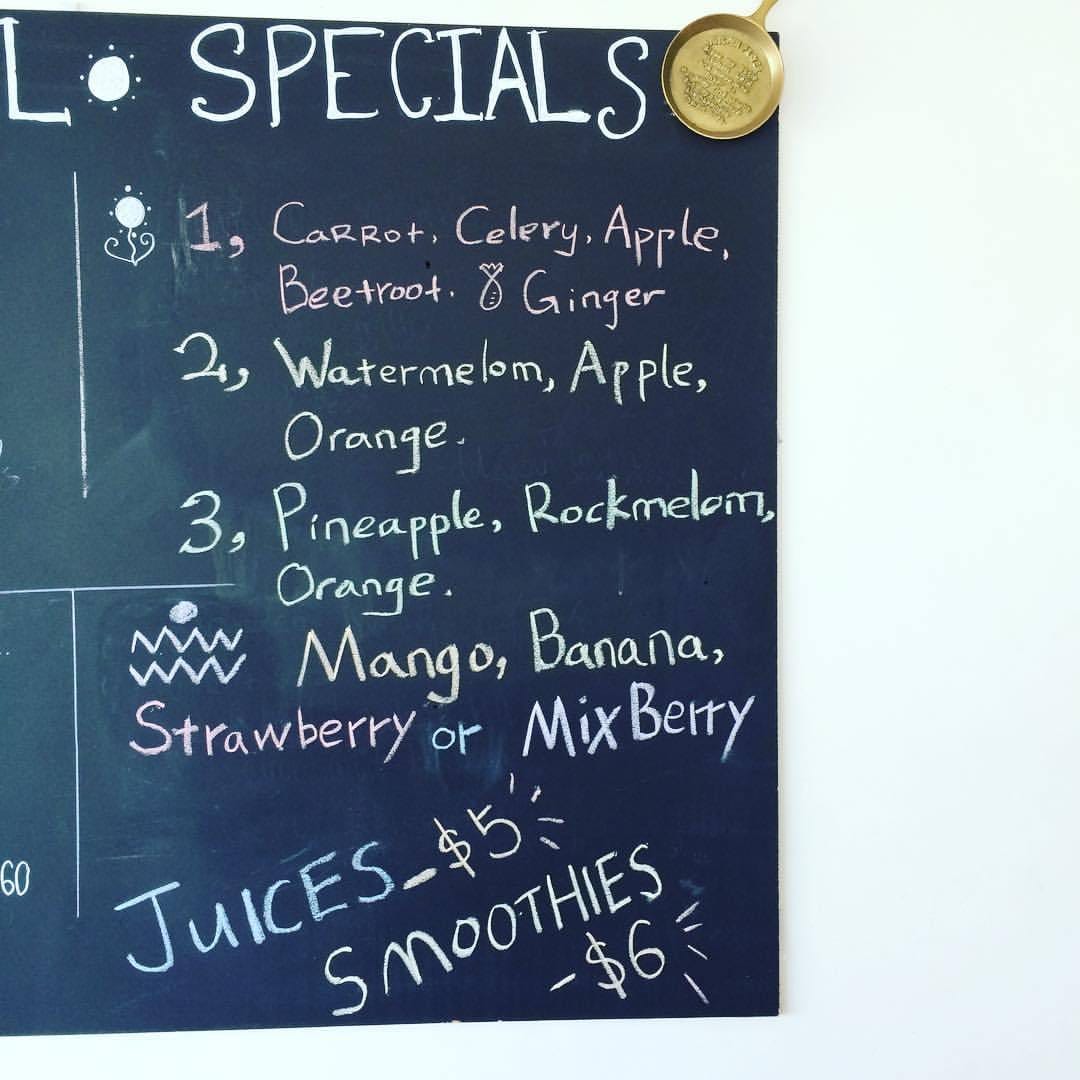 L SPECIALS
1, Carrot, Celery, Apple,
Beetroot. & Ginger
2, Watermelom, Apple,
Orange.
3, Pineapple, Rockmelom,
Orange.
Mango, Banana,
Strawberry or Mix Berry
60
JUICES - $5
SMOOTHIES
- $6